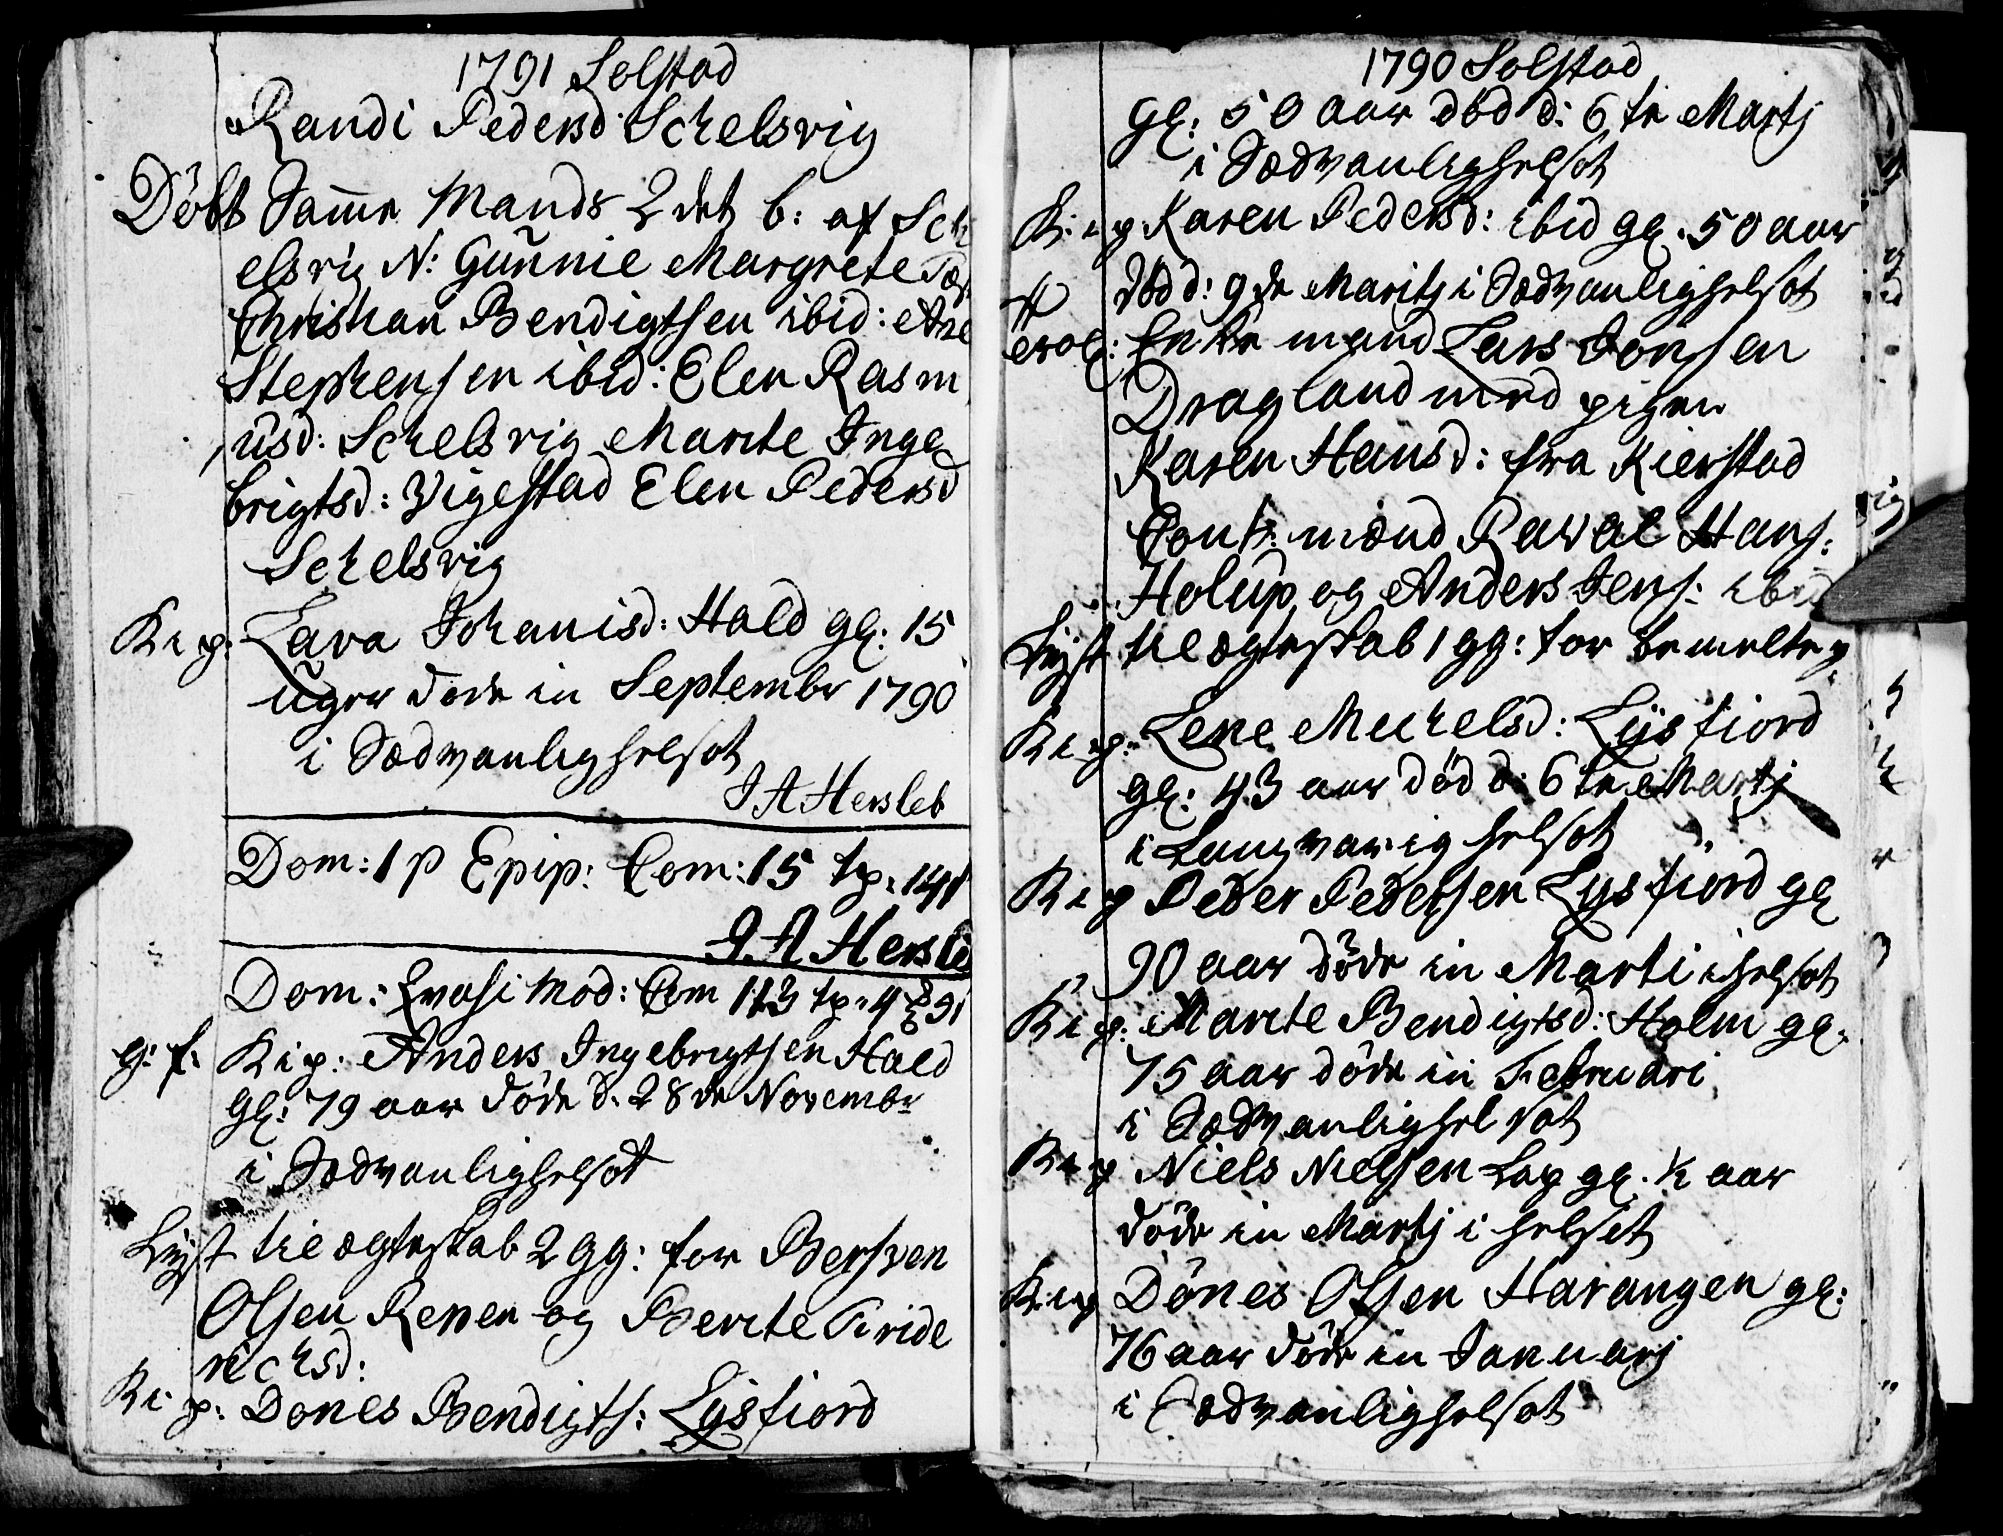 1791 Solstad
Randi Pedersd. Schelsvig
Döbt Samme Mands 2 det b: af Sch
elsvig N: Gunnie Margrete
Christian Bendigtsen ibid: Ane
Stephensen ibid: Elen Rasm
usd: Schelsvig Marite Inge
brigtsd: Vigestad Elen Pedersd
Schelsvig
K i p: Lava Johanisd: Hald gl: 15
uger döde in Septembr 1790
i Sædvanlig helsot
J A Hersleb
Dom: 1 p Epip: Com: 15 tp. 141
J A Hersle
Dom: Qvasi Mod: Com 113 tp. 4 ß 91
g: f. K i p: Anders Ingebrigtsen Hald
gl: 79 aar döde d. 28 de Novembr
i Sædvanlig helsot
Lyst til ægteskab 2 gg: for Bersven
Olsen Reppen og Berete Fride
richsd:
K i p: Dones Bendigts: Lysfiord
1790 Solstad
gl: 50 aar död d: 6 te Martj
i Sædvanlig helsot
K i p Karen Pedersd: ibid gl. 50 aar
död d: 9 de Maritj i Sædvanlig helsot
Trol: Enke mand Lars Jonsen
Dragland med pigen
Karen Hansd: fra Kierstad
Cout: mænd Paval Hans:
Holup og Anders Jens: ibid
Lyst til ægteskab 1 gg: for bemelte p
K i p: Lene Michelsd: Lysfiord
gl: 43 aar död d: 6 te Martj
i Langvarig helsot
K i p Peder Pedersen Lysfiord gl
90 aar döde in Marti i helsot
K i p: Marite Bendigtsd: Holm gl.
75 aar döde in Februari
i Sædvanlig helsot
K i p Niels Nielsen Lap gl. ½ aar
döde in Martj i helsot
K i p Dönes Olsen Havangen gl:
76 aar döde in Januarj
i Sædvanlig helsot